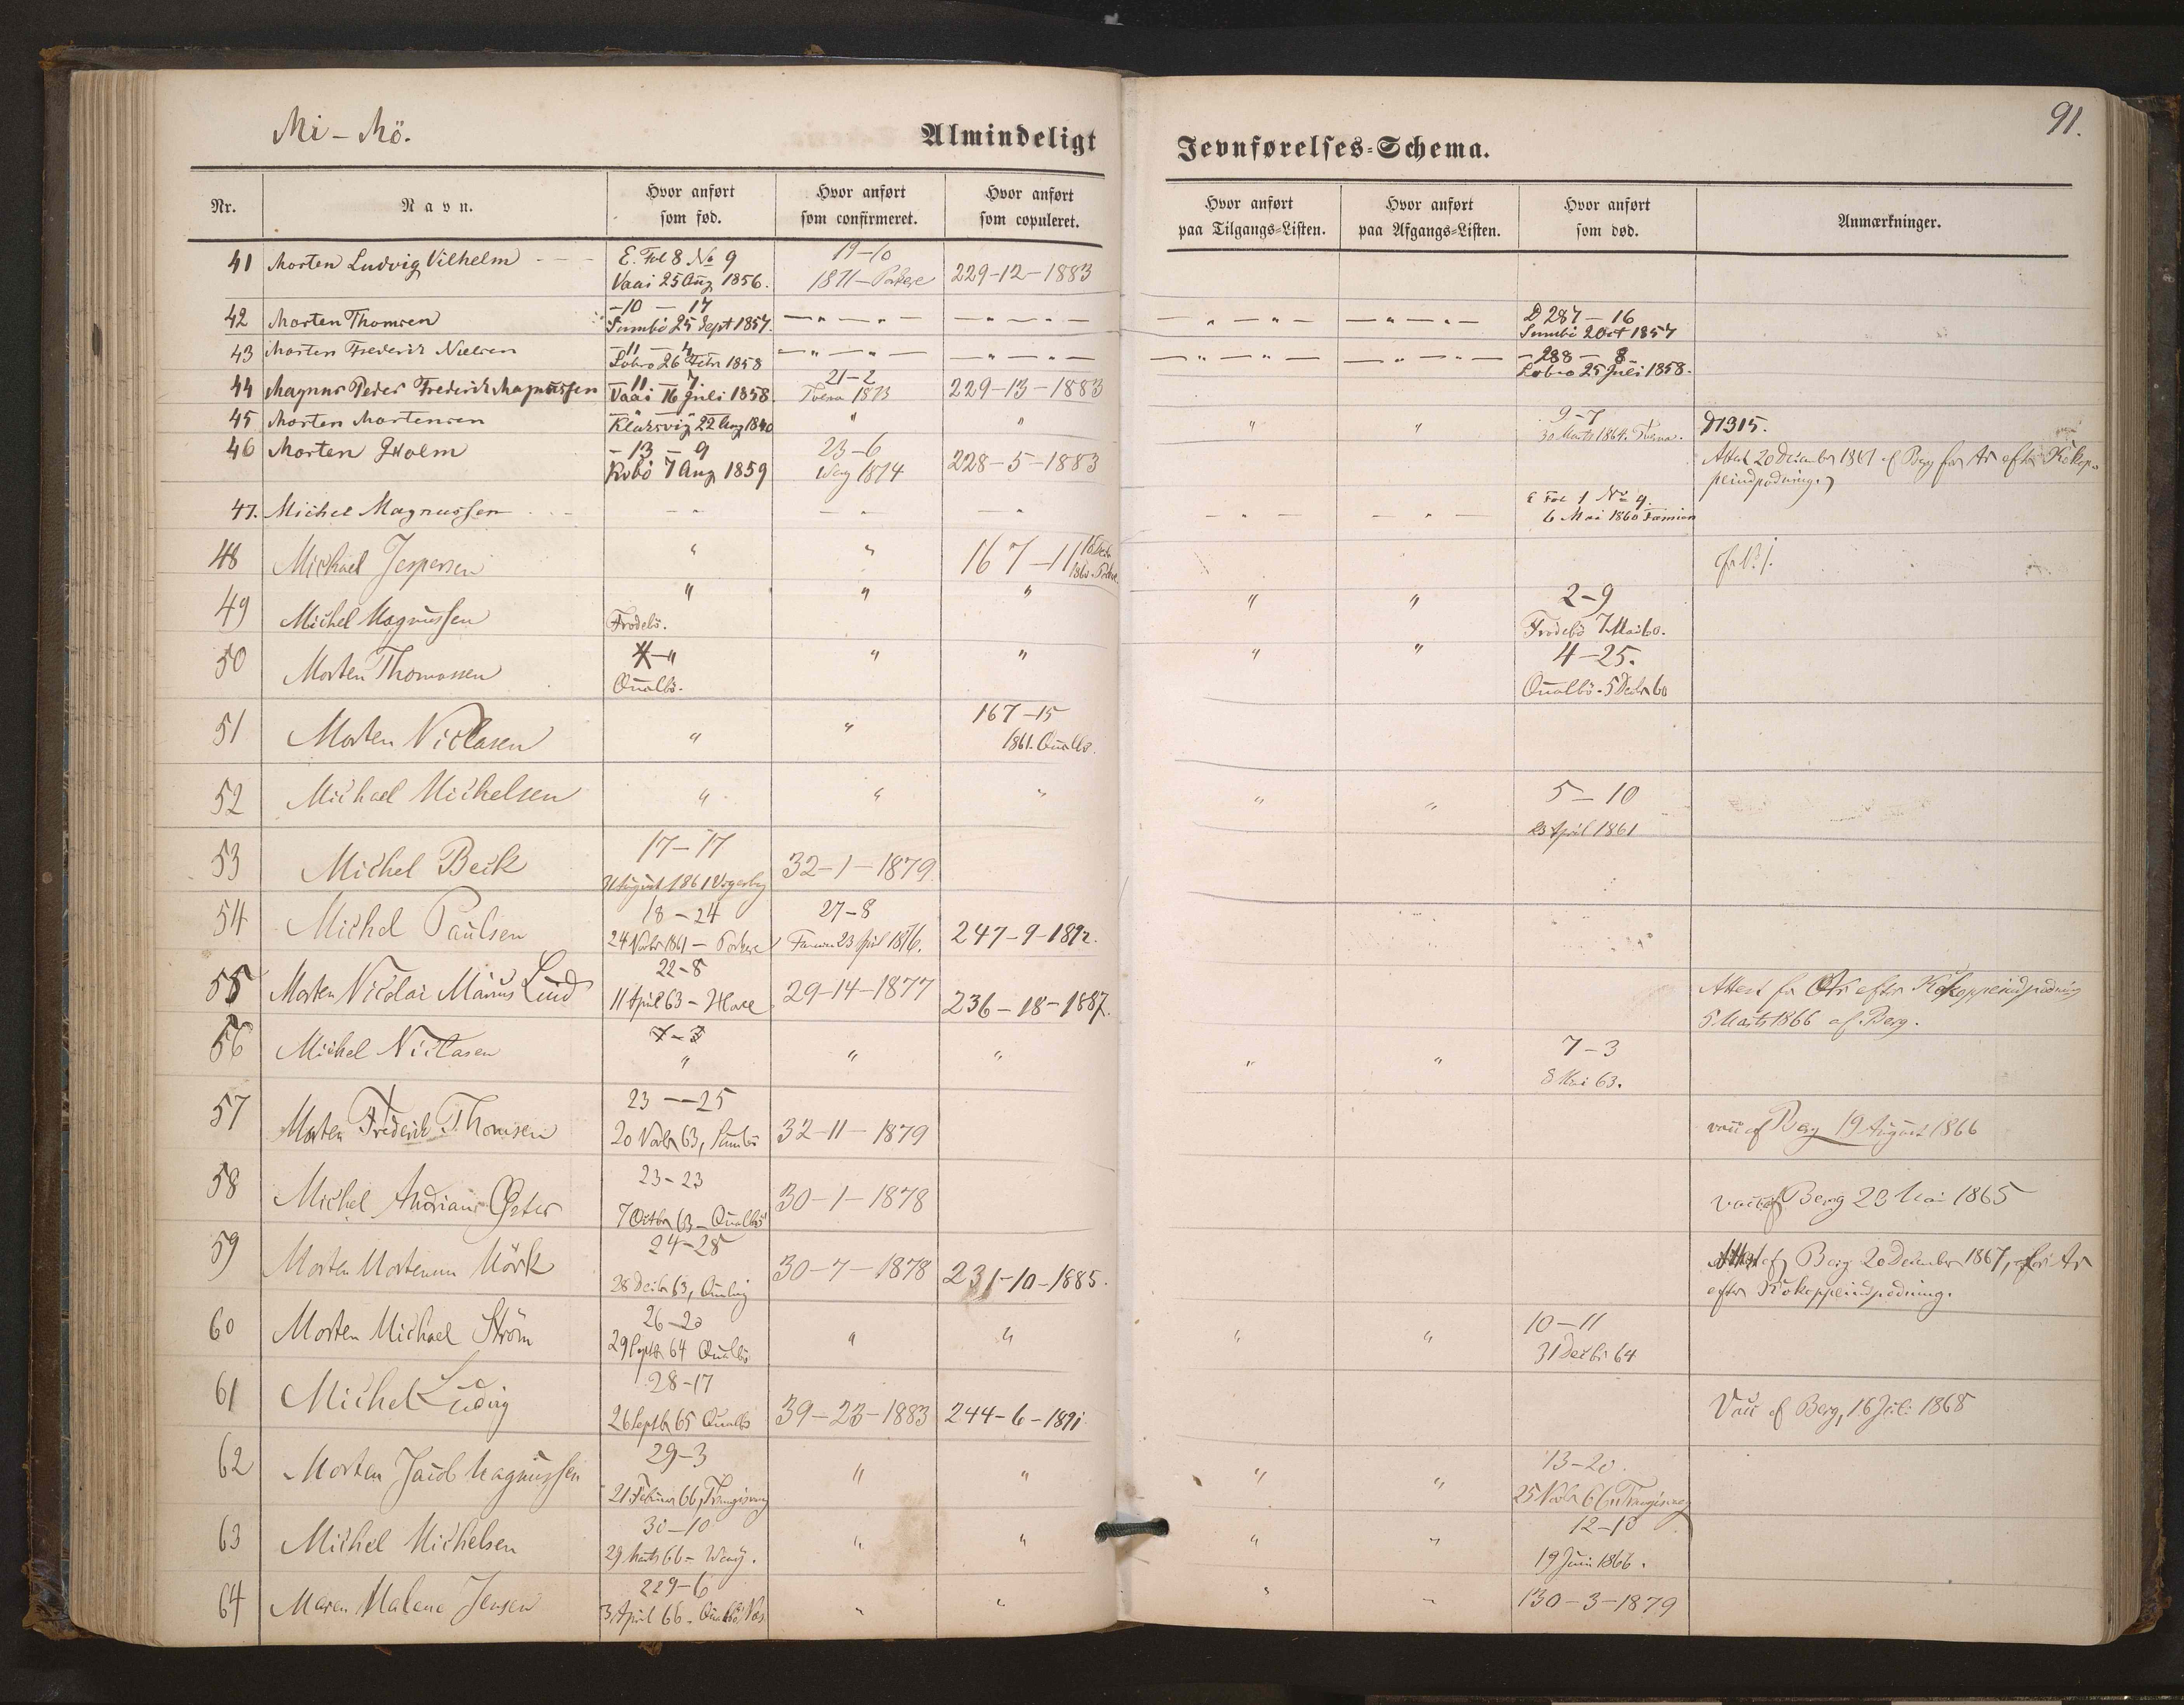 Mi - Mö.
Almindeligt
Jevnførelses-Schema.
91.
Nr.
Navn.
Hvor anført som fød.
Hvor anført som confirmeret.
Hvor anført som copuleret.
Hvor anført paa Tilgangs-Listen.
Hvor anført paa Afgangs-Listen.
Hvor anført som død.
Anmærkninger.
41 Morten Ludvig Vilhelm - - - E. Fol 8 No 9 19-10
Vaai 25 Aug 1856. 1871 - Porkere 229-12-1883
42 Morten Thomsen -10 - 17 D 287 - 16
Sumbö 25 Sept 1857. Sumbö 2 Oct 1857
43 Morten Frederik Nielsen -11 - 4 -288 - 8
Lobro 26 Febr 1858 Lobro 25 Juli 1858.
44 Magnus Peder Frederik Magnussen -11 - 7. 21-2 229-13-1883
Vaai 16 Juli 1858. 1873
45 Morten Mortensen Klaksvig 22 Aug 1840 " " " " 9-7 D1315.
30 Marts 1864.
46 Morten Holm -13 - 9 23-6 228-5-1883
7 Aug 1859 1874
Attest 20 December 1861 af Berg for Ar efter Kokop-
peindpodning.
47. Michel Magnussen E Fol 1 No 4.
6 Mai 1860 Famien
48 Michael Jespersen " " 167-11 1860
49 Michel Magnussen " " " " " 2-9
Frodebö. Frodebö 7 Mai 60.
50 Morten Thomassen 4-" " " " " 4-25.
Qualbö. Qualbö - 5 Decbr 60
51 Morten Niclasen " " 167-15
1861. Qualbö.
52 Michael Michelsen " " " " " 5-10
23 April 1861
53 Michel Beck 17-17 32-1-1879
August 1861
54 Michel Paulsen 18-24 27-8 247-9-1892.
24 Novbr 1861 - Porkere 23 April 1876.
55 Morten Nicolai Marius Lund 22-8 29-14-1877 236-18-1887.
11 April 63 - Hove
Attest for Ar efter Kokoppeindpodning
5 Marts 1866 af Berg.
56 Michel Niclasen 7-3 " " " " " 7-3
8 Mai 63.
57 Morten Frederik Thomsen 23--25 32-11-1879
20 Novbr 63, Sumbö
vacc af Berg 19 August 1866
58 Michel Andrians Oster 23-23 30-1-1878
7 Octbr 63 - Qualbö
vacc af Berg 23 Mai 1865
59 Morten Mortensen Mörk 24-28 30-7-1878 231-10-1885.
28 Decbr 63,
Attest af Berg 20 December 1867, for Ar
efter Kokoppeindpodning.
60 Morten Michael Ström 26-20 " " " " 10-11
29 Septbr 64 Qualbö 31 Decbr 64
61 Michel Ludvig 28-17 39-23-1883 244-6-1891.
26 Septbr 65 Qualbö
Vacc af Berg, 16 Juli 1868
62 Morten Jacob Magnussen 29-3 " " " " 13-20.
21 Februar 66, Trangisvaag 25 Novbr 66 Trangisvaag
63 Michel Michelsen 30-10 " " " " 12-10
29 Marts 66 - 19 Juni 1866.
64 Maren Malene Jensen 229-6 " " " " 130-3-1879
3 April 66 - Qualbö